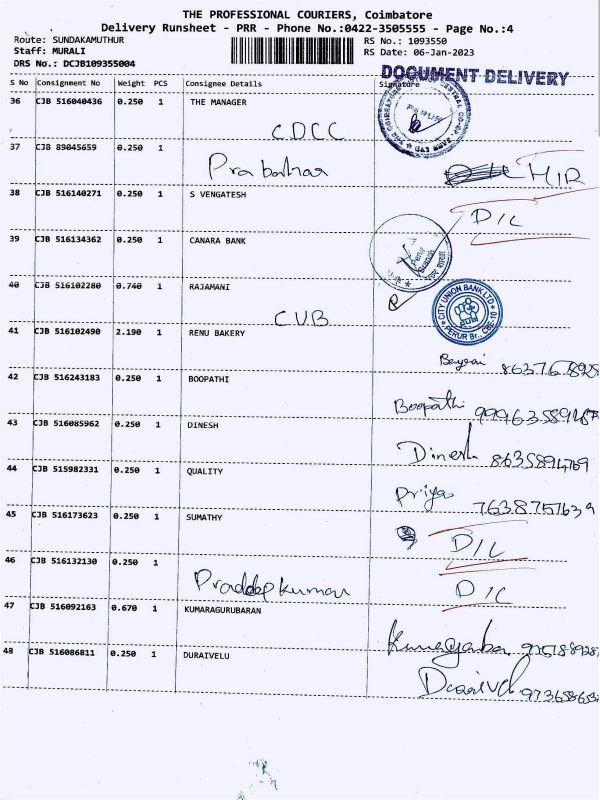 THE PROFESSIONAL COURIERS, Coimbatore
Delivery Runsheet - PRR - Phone No.:0422-3505555 - Page No.:4
Route: SUNDAKAMUTHUR RS No.: 1093550
Staff: MURALI RS Date: 06-Jan-2023
DRS No.: DCJB109355004
DOCUMENT DELIVERY
S No Consignment No Weight PCS Consignee Details Signature
36 CJB 516040436 0.250 1 THE MANAGER
CDCC
37 CJB 89045659 0.250 1
Prabakar H1R
38 CJB 516140271 0.250 1 S VENGATESH
D/C
39 CJB 516134362 0.250 1 CANARA BANK
40 CJB 516102280 0.740 1 RAJAMANI
CUB
CITY UNION BANK LTD
CUB
PERUR Br., CBE-10
41 CJB 516102490 2.190 1 RENU BAKERY
42 CJB 516243183 0.250 1 BOOPATHI
Boopathi
43 CJB 516085962 0.250 1 DINESH
Dinesh 8635894769
44 CJB 515982331 0.250 1 QUALITY
Priya 7638757639
45 CJB 516173623 0.250 1 SUMATHY
D/C
46 CJB 516132130 0.250 1
Praddepkumar D/C
47 CJB 516092163 0.670 1 KUMARAGURUBARAN
48 CJB 516086811 0.250 1 DURAIVELU